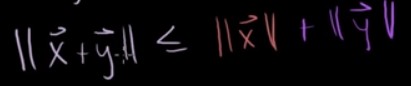 ‖x⃗+y⃗‖ ≤ ‖x⃗‖ + ‖y⃗‖